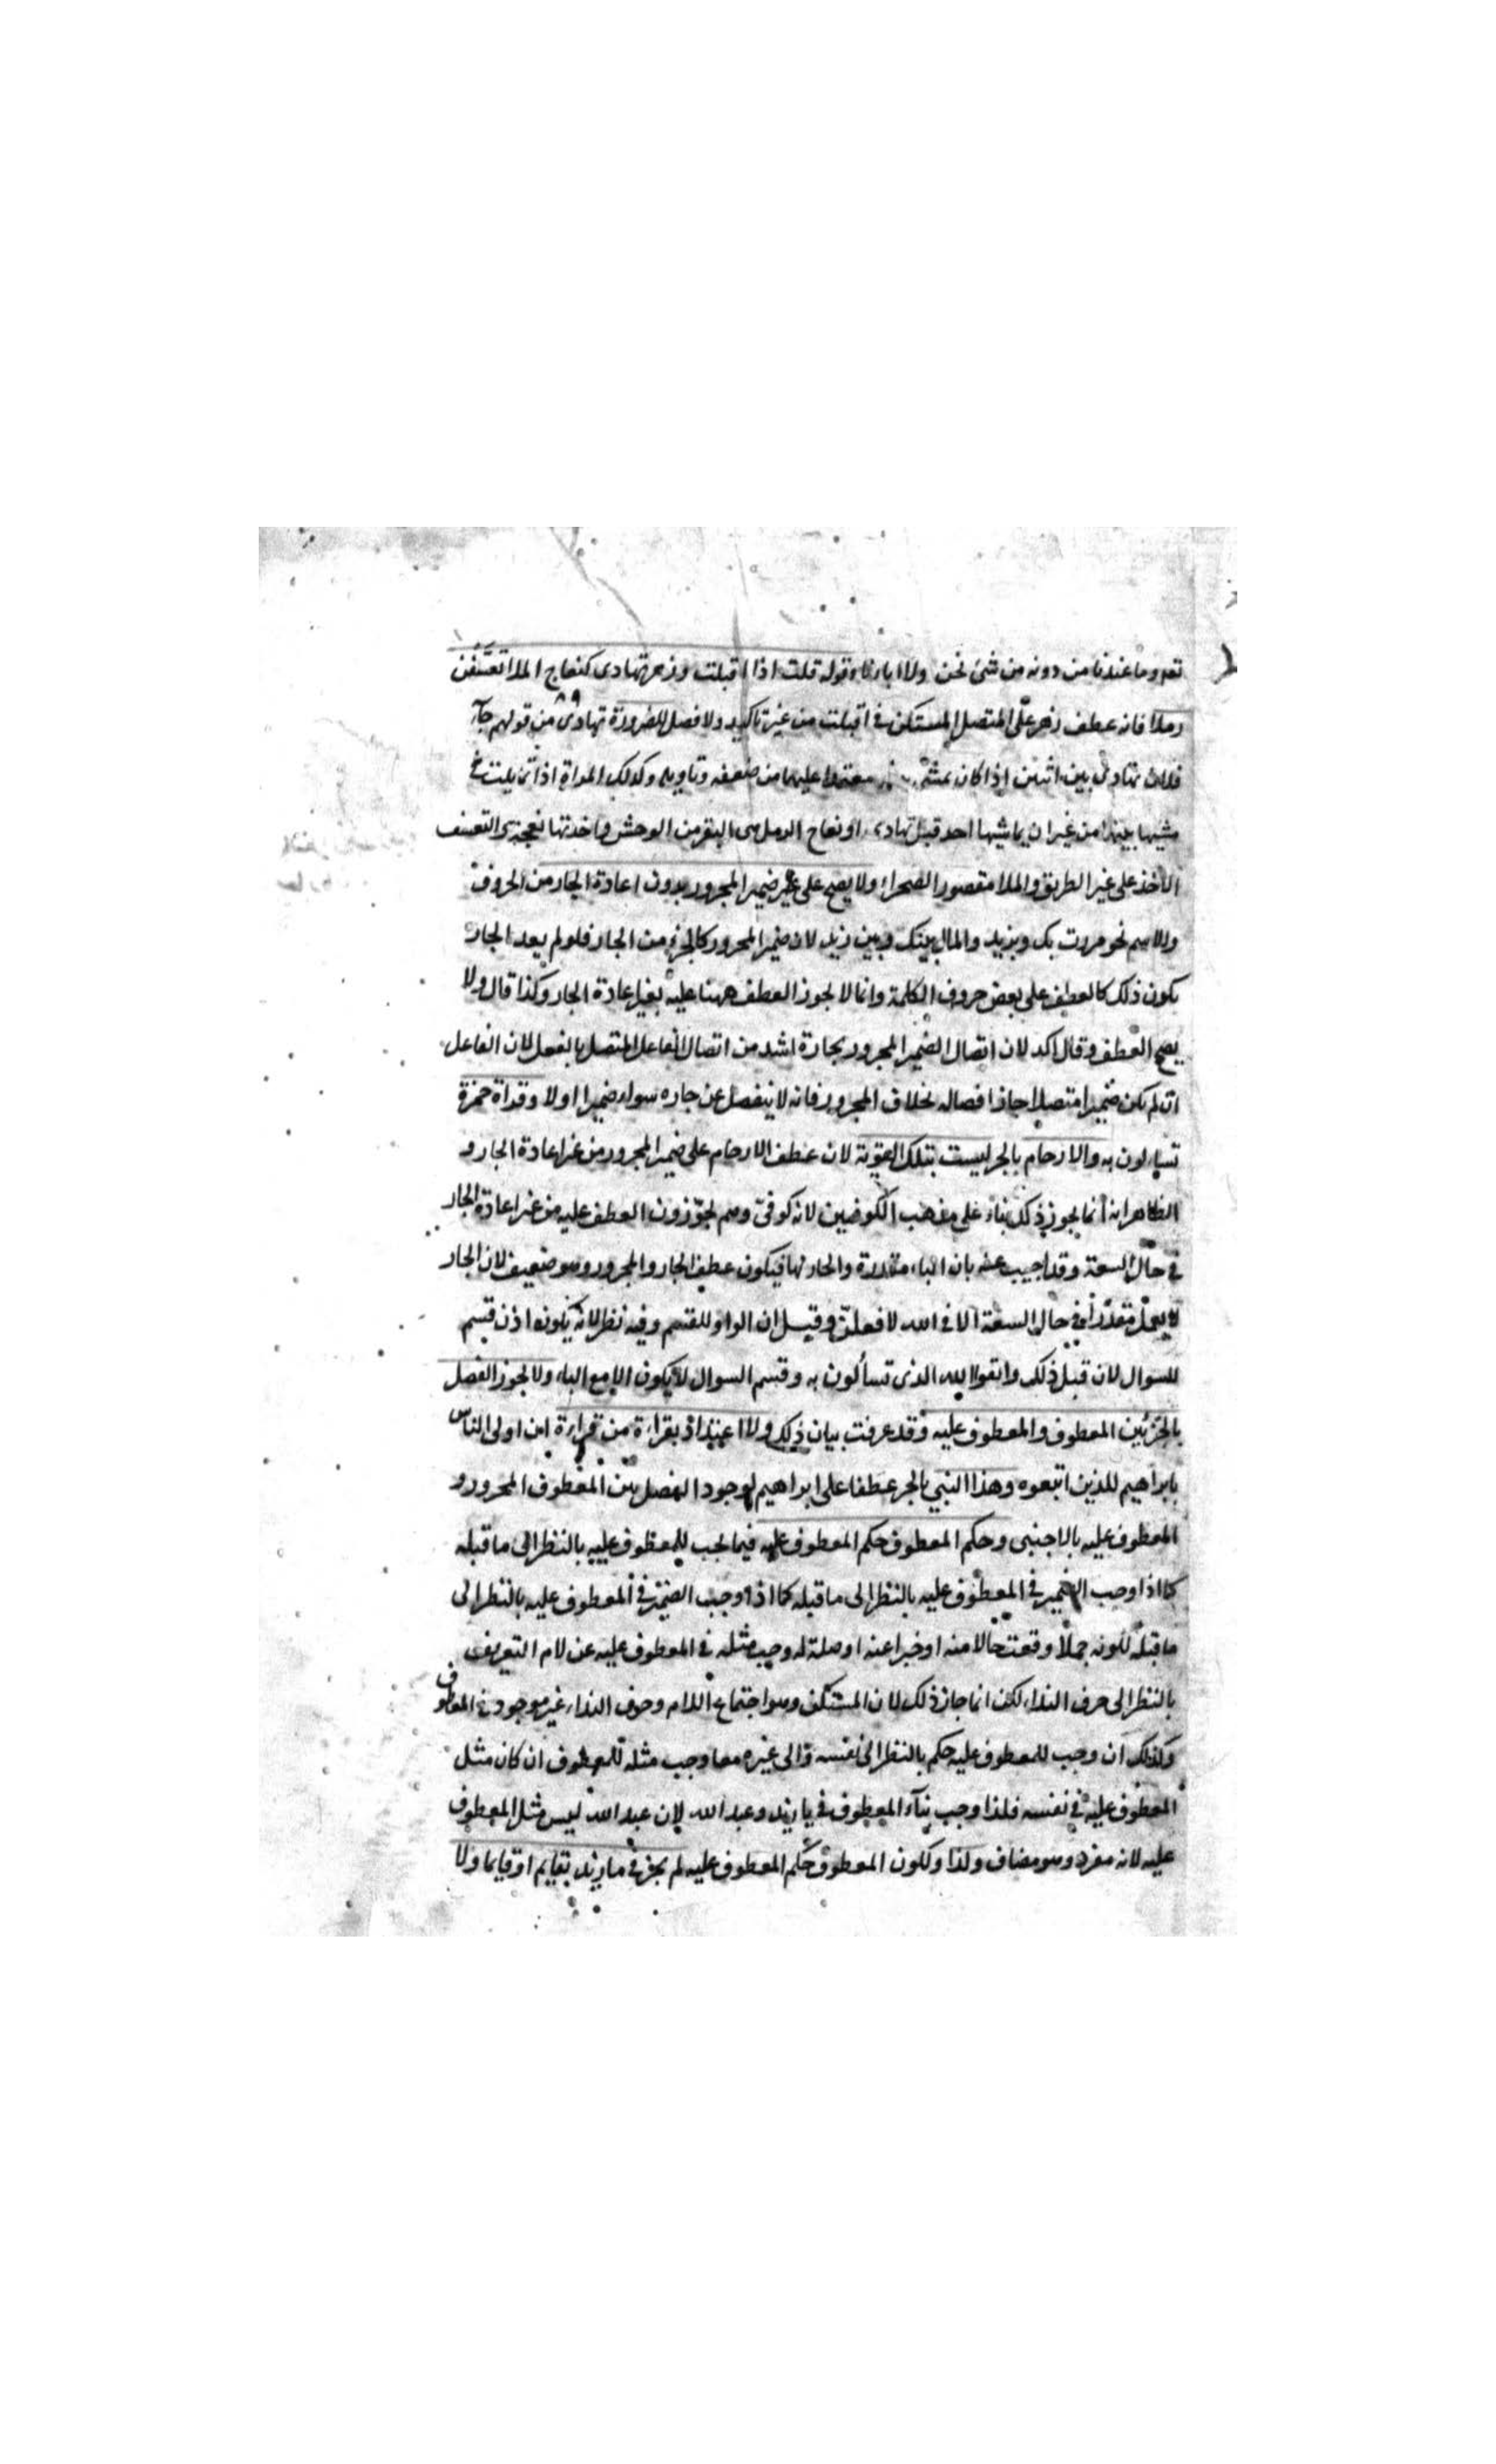 تعم وما عندنا من دونه من شئ نحن ولا اباؤنا وقوله قلت اذا اقبلت وزهر تهادى كنعاج الملا تعسفن
رملا فانه عطف زهر على المتصل المستكن في اقبلت من غير تاكيد ولا فصل للضرورة تهادى من قولهم جآء
فلان يتهادى بين اثنين اذا كان يمشى بينهما معتمدا عليهما من ضعفه وتمايله وكذلك المراة اذا تمايلت في
مشيها بينهما من غير ان يماشيها احد قيل تهادى ونعاج الرمل هى البقر من الوحش واحدتها نعجة والتعسف
الاخذ على غير الطريق والملا مقصورا الصحراء ولا يصح على غير ضمير المجرور بدون اعادة الجار من الحروف
والاسم نحو مررت بك وبزيد والمال بينك وبين زيد لان ضمير المجرور كالجزء من الجار فلو لم يعد الجار
يكون ذلك كالعطف على بعض حروف الكلمة وانما لا يجوز العطف ههنا عليه بغير اعادة الجار وكذا قال ولا
يصح العطف وقال اكد لان اتصال الضمير المجرور بجاره اشد من اتصال الفاعل المتصل بالفعل لان الفاعل
ان لم يكن ضميرا متصلا جاز افصاله بخلاف المجرور فانه لا ينفصل عن جاره سواء ضميرا اولا وقراة حمزة
تساءلون به والارحام بالجر ليست بتلك القوية لان عطف الارحام على ضمير المجرور من غير اعادة الجار و
الظاهر انه انما يجوز ذلك بناء على مذهب الكوفيين لانه كوفى وهم يجوّزون العطف عليه من غير اعادة الجار
في حال السعة وقد اجيب عنه بان الباء مقدرة والجار بها فيكون عطف الجار والمجرور وهو ضعيف لان الجار
لا يعمل مقدرا في حال السعة الا في الله لافعلن وقيل ان الواو للقسم وفيه نظر لانه يكون اذن قسم
للسوال لان قبل ذلك واتقوا الله الذى تسألون به وقسم السوال لا يكون الا مع الباء ولا يجوز الفصل
بالجزئين المعطوف والمعطوف عليه وقد عرفت بيان ذلك ولا اعتداد بقراءة من قراءة ان اولى الناس
بابراهيم للذين اتبعوه وهذا النبي بالجر عطفا على ابراهيم لوجود الفصل بين المعطوف المجرور و
المعطوف عليه بالاجنبى وحكم المعطوف حكم المعطوف عليه فيما يجب للمعطوف عليه بالنظر الى ما قبله
كما اذا وجب الضمير في المعطوف عليه بالنظر الى ما قبله كما اذا وجب الضمير في المعطوف عليه بالنظر الى
ما قبله لكونه جملا وقعت حالا منه او خبرا عنه او صلة له وجب مثله في المعطوف عليه عن لام التعريف
بالنظر الى حرف النداء لكن انما جاز ذلك لان المستنكر وهو اجتماع اللام وحرف النداء غير موجود في المعطوف
وكذلك ان وجب للمعطوف عليه حكم بالنظر الى نفسه والى غيره معا وجب مثله للمعطوف ان كان مثل
المعطوف عليه في نفسه فلذا وجب بنآء المعطوف في يا زيد وعبد الله لان عبد الله ليس مثل المعطوف
عليه لانه مفرد وهو مضاف ولذا ولكون المعطوف حكم المعطوف عليه لم يجز في ما زيد بقايم او قايما ولا